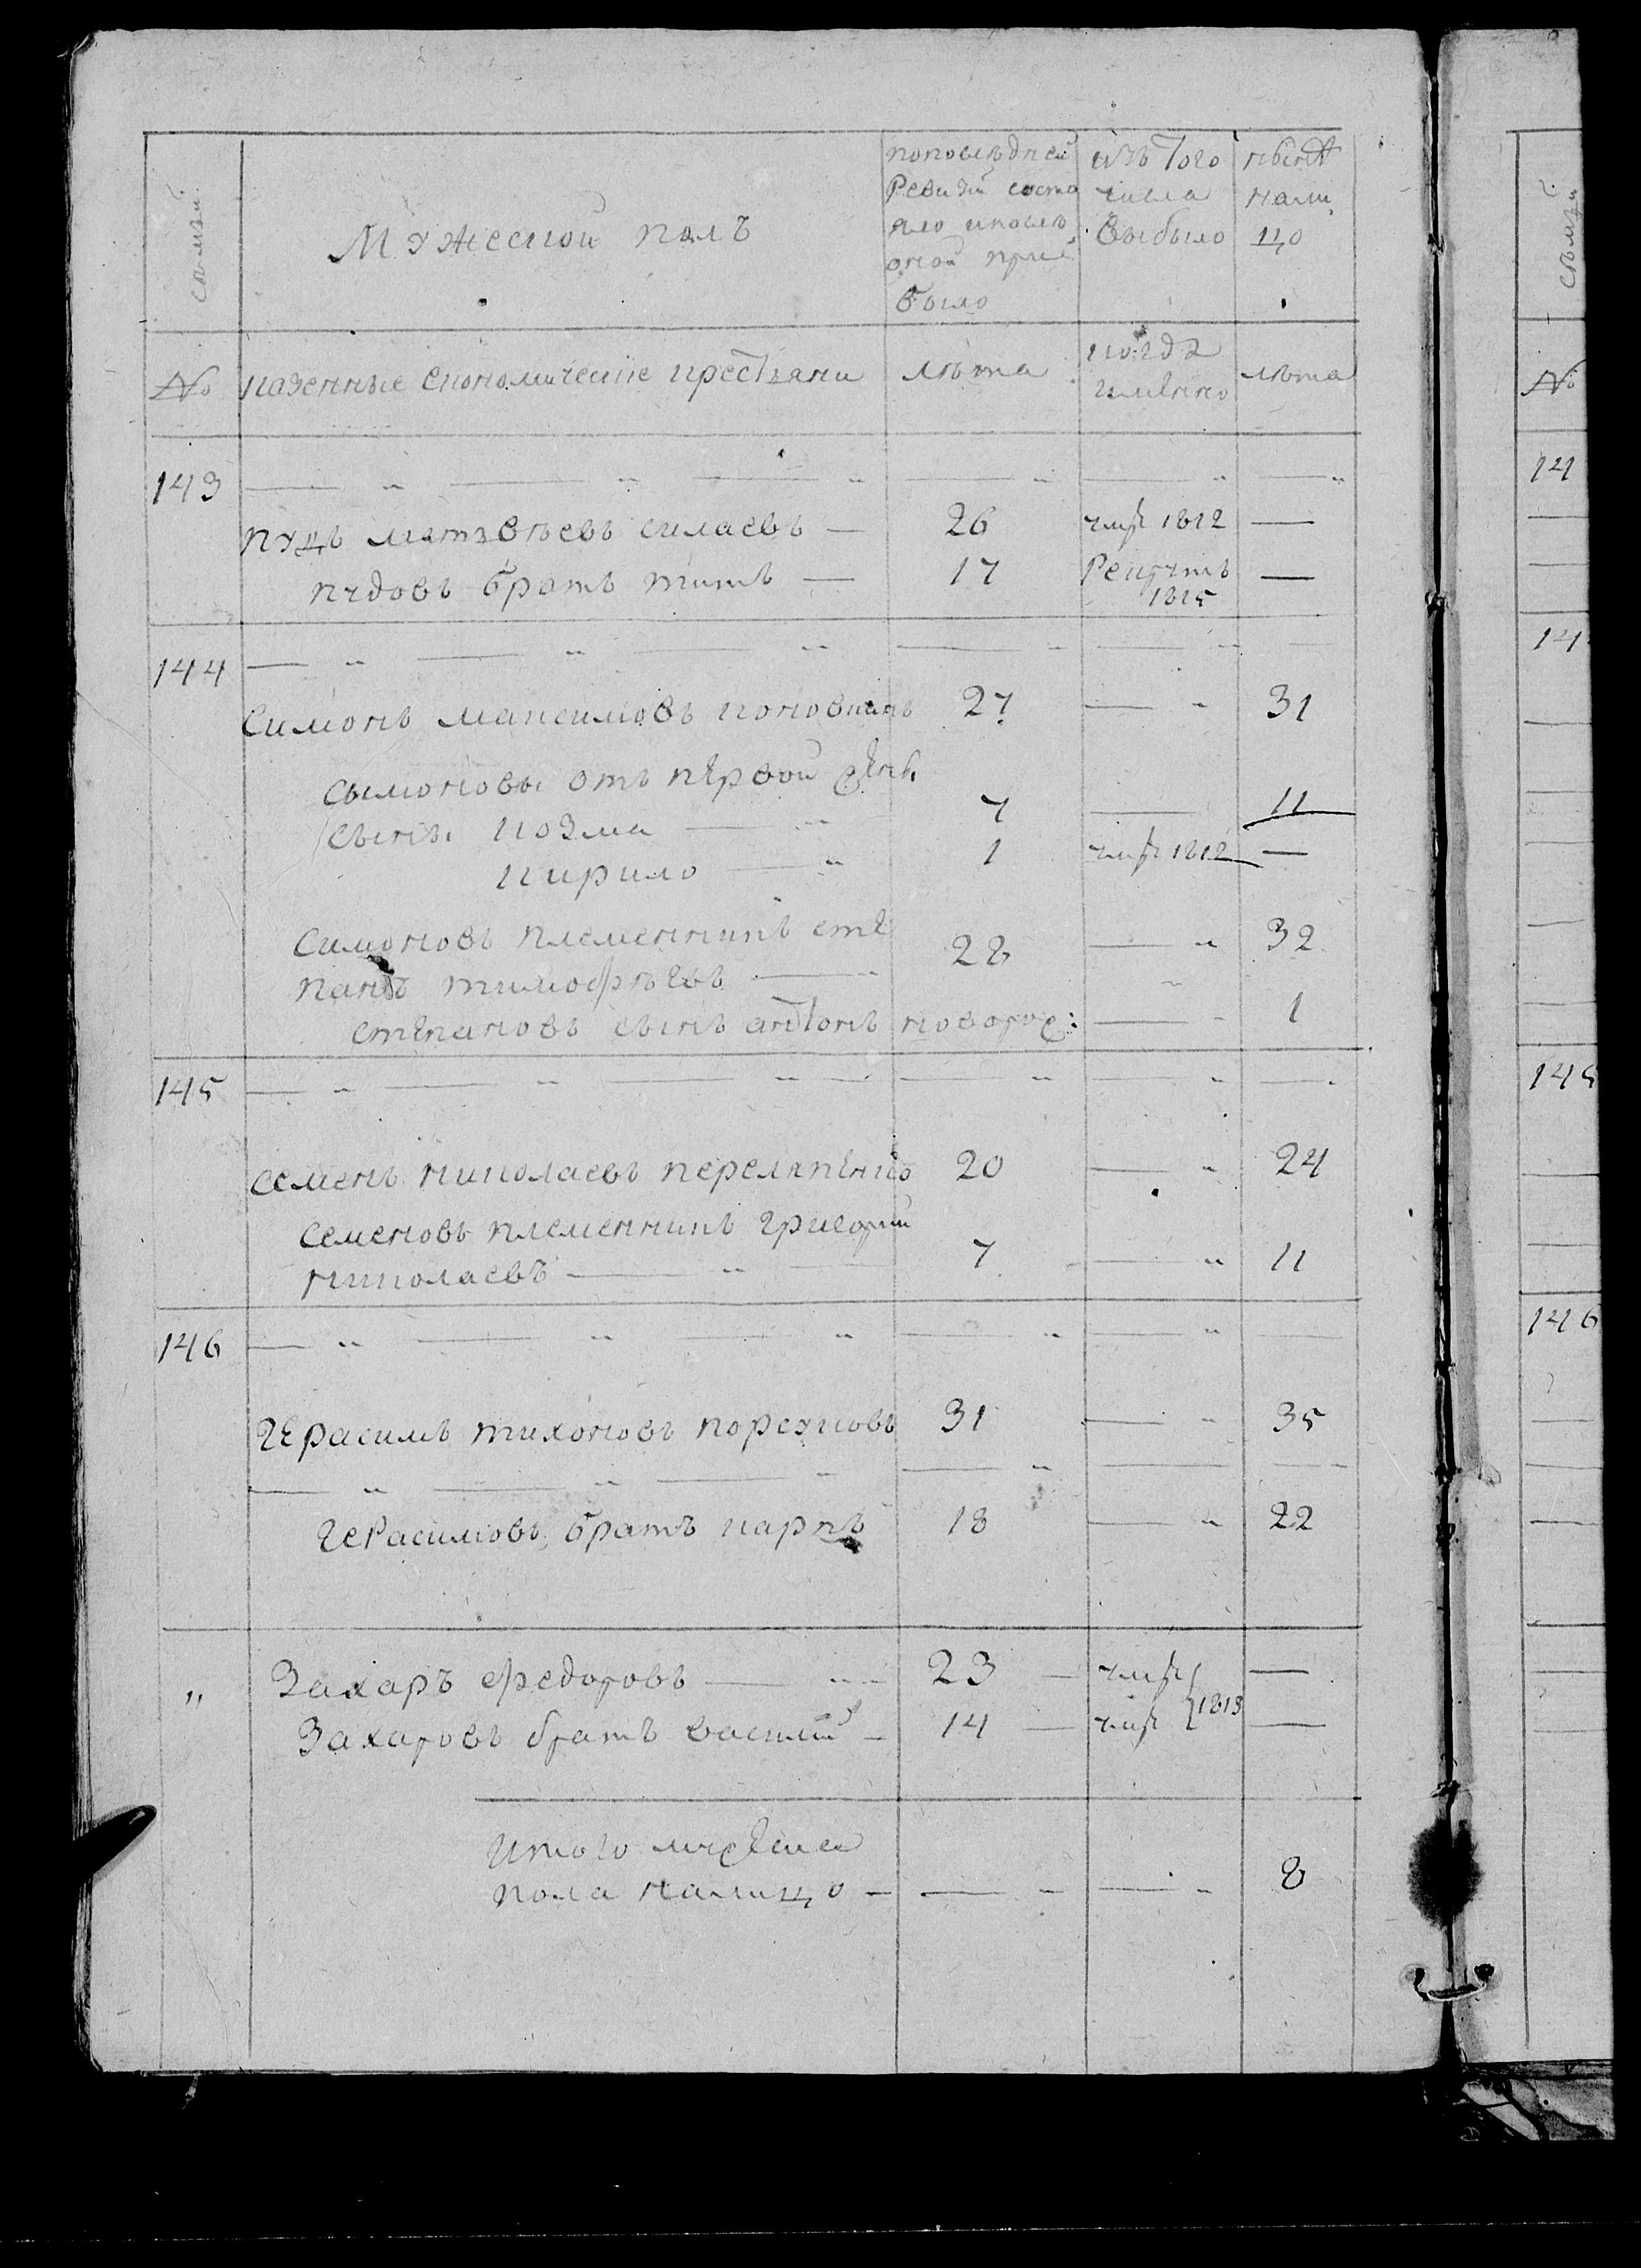 семьи
Мужеской полъ
попоследней
Ревизии состо
яло ипосле
оной при
было
изъ Того
числа
выбыло
ныне
нали
цо
№
казенные економическіе крестьяни
лѣта
когда
имянно
лѣта
143
Пудъ матвѣевъ силаевъ — 26 умре 1812 —
пудовъ братъ титъ — 17 Рекрутъ —
1815
144
Симонъ максимовъ коновницъ 27 — 31
Сымоновы отъ первой жены
сыны козма — 7 — 11
кирило — 1 умре 1812 —
Симоновъ племенникъ сте
панъ тимофѣевъ — 28 — 32
степановъ сынъ антонъ новорож: — 1
145
семенъ николаевъ перелапенко 20 — 24
семеновъ племенникъ григорий
николаевъ — 7 — 11
146
Герасимъ тихоновъ корсуновъ 31 — 35
Герасимовъ братъ карпъ 18 — 22
" Захаръ федоровъ — 23 — умре —
1813
Захаровъ братъ василий — 14 — умре —
Итого мужеска
пола налицо — 8
семьи
№
14
14
145
146